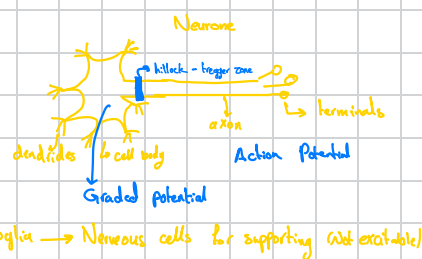 Neurone
hillock - tregger zone
terminals
axon
dendrides
cell body
Action Potential
Graded potential
oglia → Nerveous cells for supporting (Not exaitable)